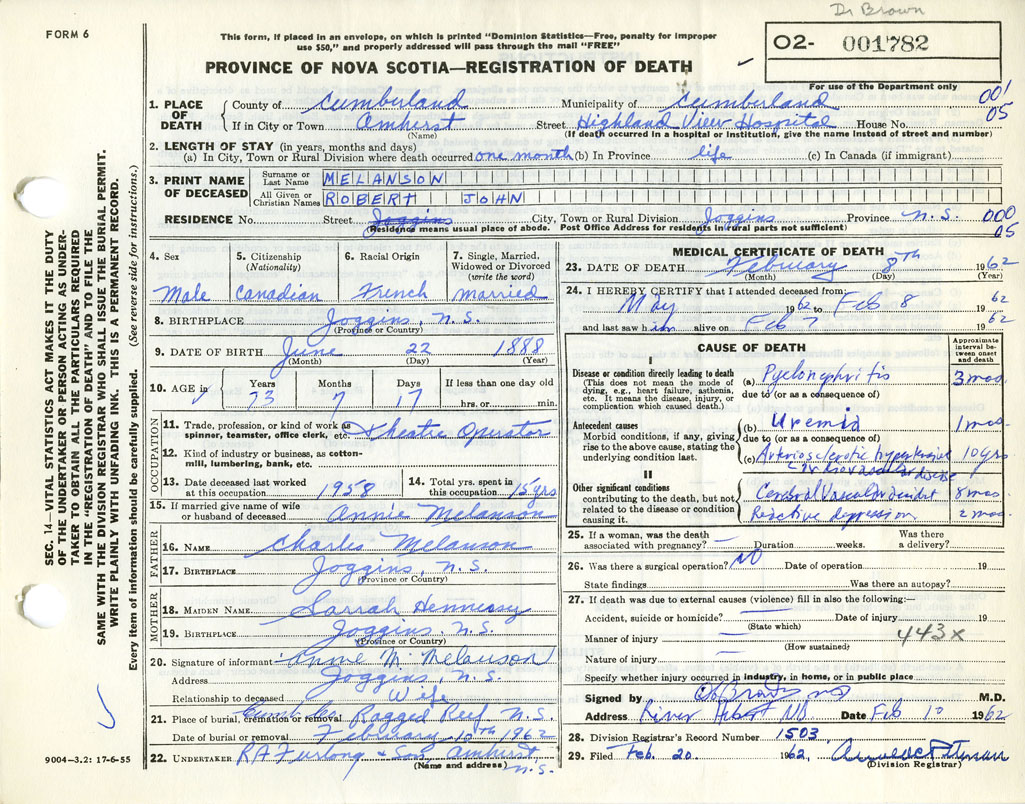 Dr Brown
FORM 6
This form, if placed in an envelope, on which is printed "Dominion Statistics—Free, penalty for improper
use $50," and properly addressed will pass through the mail "FREE"
O2- 001782
PROVINCE OF NOVA SCOTIA—REGISTRATION OF DEATH
For use of the Department only
001
05
1. PLACE OF DEATH County of Cumberland Municipality of Cumberland
If in City or Town Amherst Street Highland View Hospital House No.
(Name) (If death occurred in a hospital or institution, give the name instead of street and number)
2. LENGTH OF STAY (in years, months and days)
(a) In City, Town or Rural Division where death occurred one month (b) In Province life (c) In Canada (if immigrant)
3. PRINT NAME OF DECEASED Surname or Last Name MELANSON
All Given or Christian Names ROBERT JOHN
RESIDENCE No. Street Joggins City, Town or Rural Division Joggins Province N.S. 000
05
(Residence means usual place of abode. Post Office Address for residents in rural parts not sufficient)
4. Sex 5. Citizenship (Nationality) 6. Racial Origin 7. Single, Married, Widowed or Divorced (write the word)
Male Canadian French married
8. BIRTHPLACE Joggins, N.S.
(Province or Country)
9. DATE OF BIRTH June 22 1888
(Month) (Day) (Year)
10. AGE Years Months Days If less than one day old
73 7 17 hrs. or min.
OCCUPATION
11. Trade, profession, or kind of work as spinner, teamster, office clerk, etc. Theatre Operator
12. Kind of industry or business, as cotton-mill, lumbering, bank, etc.
13. Date deceased last worked at this occupation 1958 14. Total yrs. spent in this occupation 15 yrs
15. If married give name of wife or husband of deceased Annie Melanson
FATHER
16. NAME Charles Melanson
17. BIRTHPLACE Joggins, N.S.
(Province or Country)
MOTHER
18. MAIDEN NAME Sarrah Hennessy
19. BIRTHPLACE Joggins, N.S.
(Province or Country)
20. Signature of informant Annie M Melanson
Address Joggins, N.S.
Relationship to deceased Wife
21. Place of burial, cremation or removal Ragged Reef N.S.
Date of burial or removal February 10th 1962
22. UNDERTAKER R A Furlong & Son, Amherst, N.S.
(Name and address)
MEDICAL CERTIFICATE OF DEATH
23. DATE OF DEATH February 8th 1962
(Month) (Day) (Year)
24. I HEREBY CERTIFY that I attended deceased from:
May 1962 to Feb 8 1962
and last saw him alive on Feb 7 1962
CAUSE OF DEATH
Approximate interval between onset and death
I
Disease or condition directly leading to death
(This does not mean the mode of dying, e.g., heart failure, asthenia, etc. It means the disease, injury, or complication which caused death.)
(a) Pyelonephritis 3 mos.
due to (or as a consequence of)
Antecedent causes
Morbid conditions, if any, giving rise to the above cause, stating the underlying condition last.
(b) Uremia 1 mos.
due to (or as a consequence of)
(c) Arteriosclerotic hypertensive cardiovascular disease 10 yrs
II
Other significant conditions
contributing to the death, but not related to the disease or condition causing it.
Cerebral Vascular Accident 8 mos
Reactive depression 2 mos.
25. If a woman, was the death associated with pregnancy? — Duration weeks. Was there a delivery?
26. Was there a surgical operation? NO Date of operation 19
State findings Was there an autopsy?
27. If death was due to external causes (violence) fill in also the following:—
Accident, suicide or homicide? — Date of injury 19
(State which)
443x
Manner of injury —
(How sustained)
Nature of injury —
Specify whether injury occurred in industry, in home, or in public place
Signed by M.D.
Address River Hebert NS Date Feb 10 1962
28. Division Registrar's Record Number 1503
29. Filed Feb. 20 1962,
(Division Registrar)
SEC. 14—VITAL STATISTICS ACT MAKES IT THE DUTY
OF THE UNDERTAKER OR PERSON ACTING AS UNDER-
TAKER TO OBTAIN ALL THE PARTICULARS REQUIRED
IN THE "REGISTRATION OF DEATH" AND TO FILE THE
SAME WITH THE DIVISION REGISTRAR WHO SHALL ISSUE THE BURIAL PERMIT.
WRITE PLAINLY WITH UNFADING INK. THIS IS A PERMANENT RECORD.
Every item of information should be carefully supplied. (See reverse side for instructions.)
9004—3.2: 17-6-55